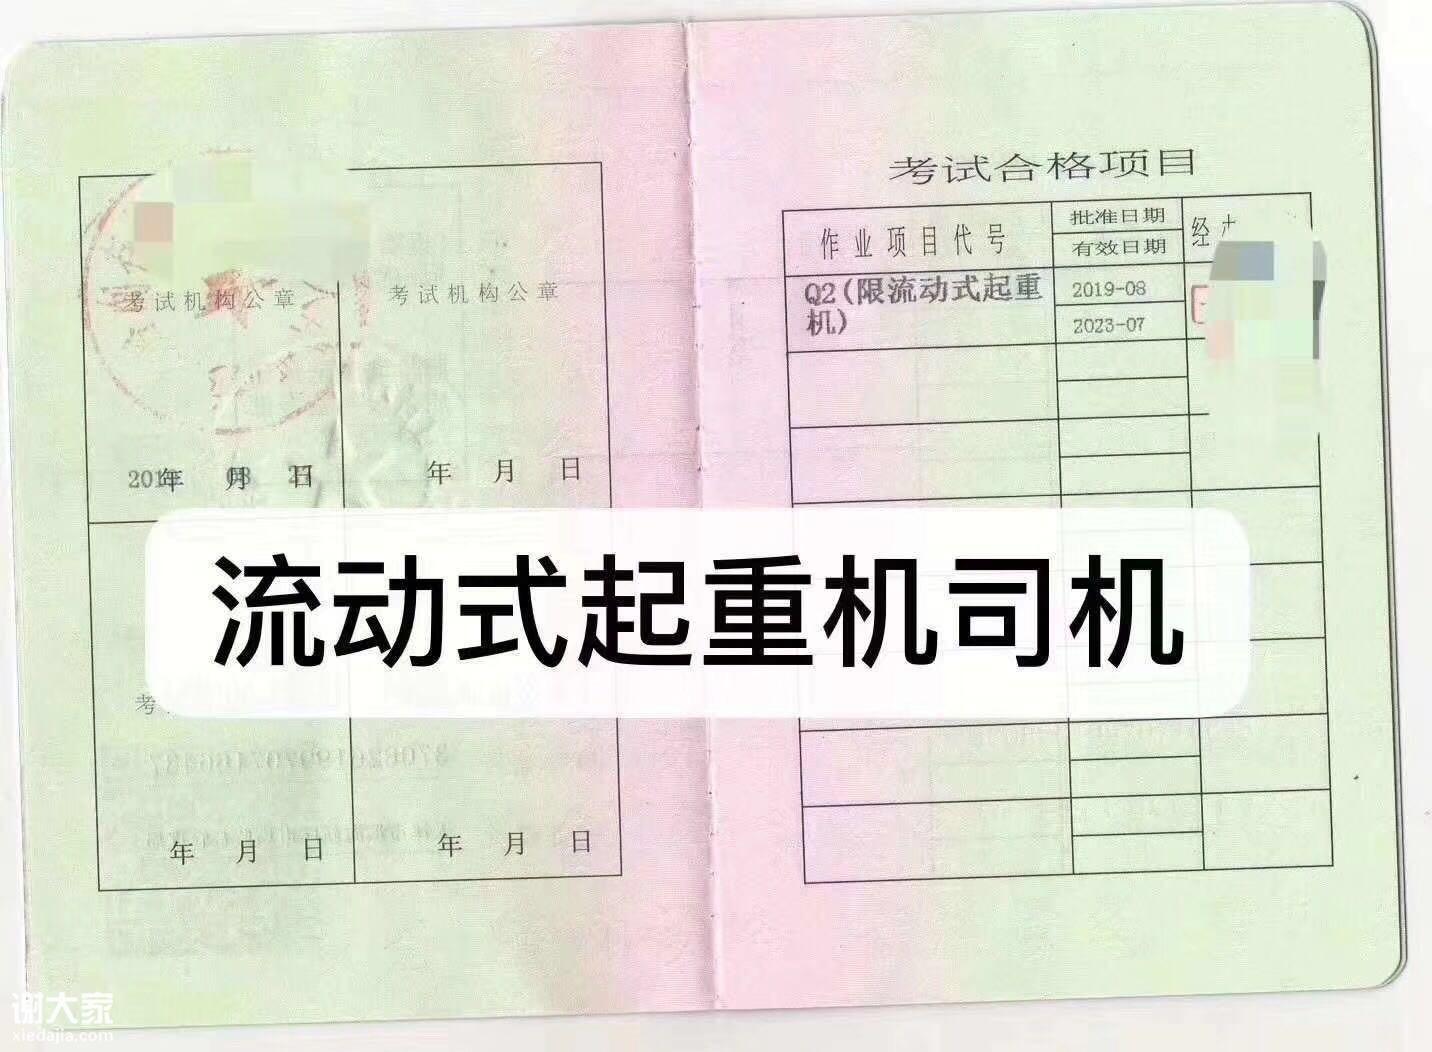 考试机构公章
考试机构公章
年 月 日
年 月 日
年 月 日
年 月 日
考试合格项目
作业项目代号
批准日期
有效日期
经
Q2(限流动式起重
机)
2019-08
2023-07
流动式起重机司机
谢大家
xiedajia.com